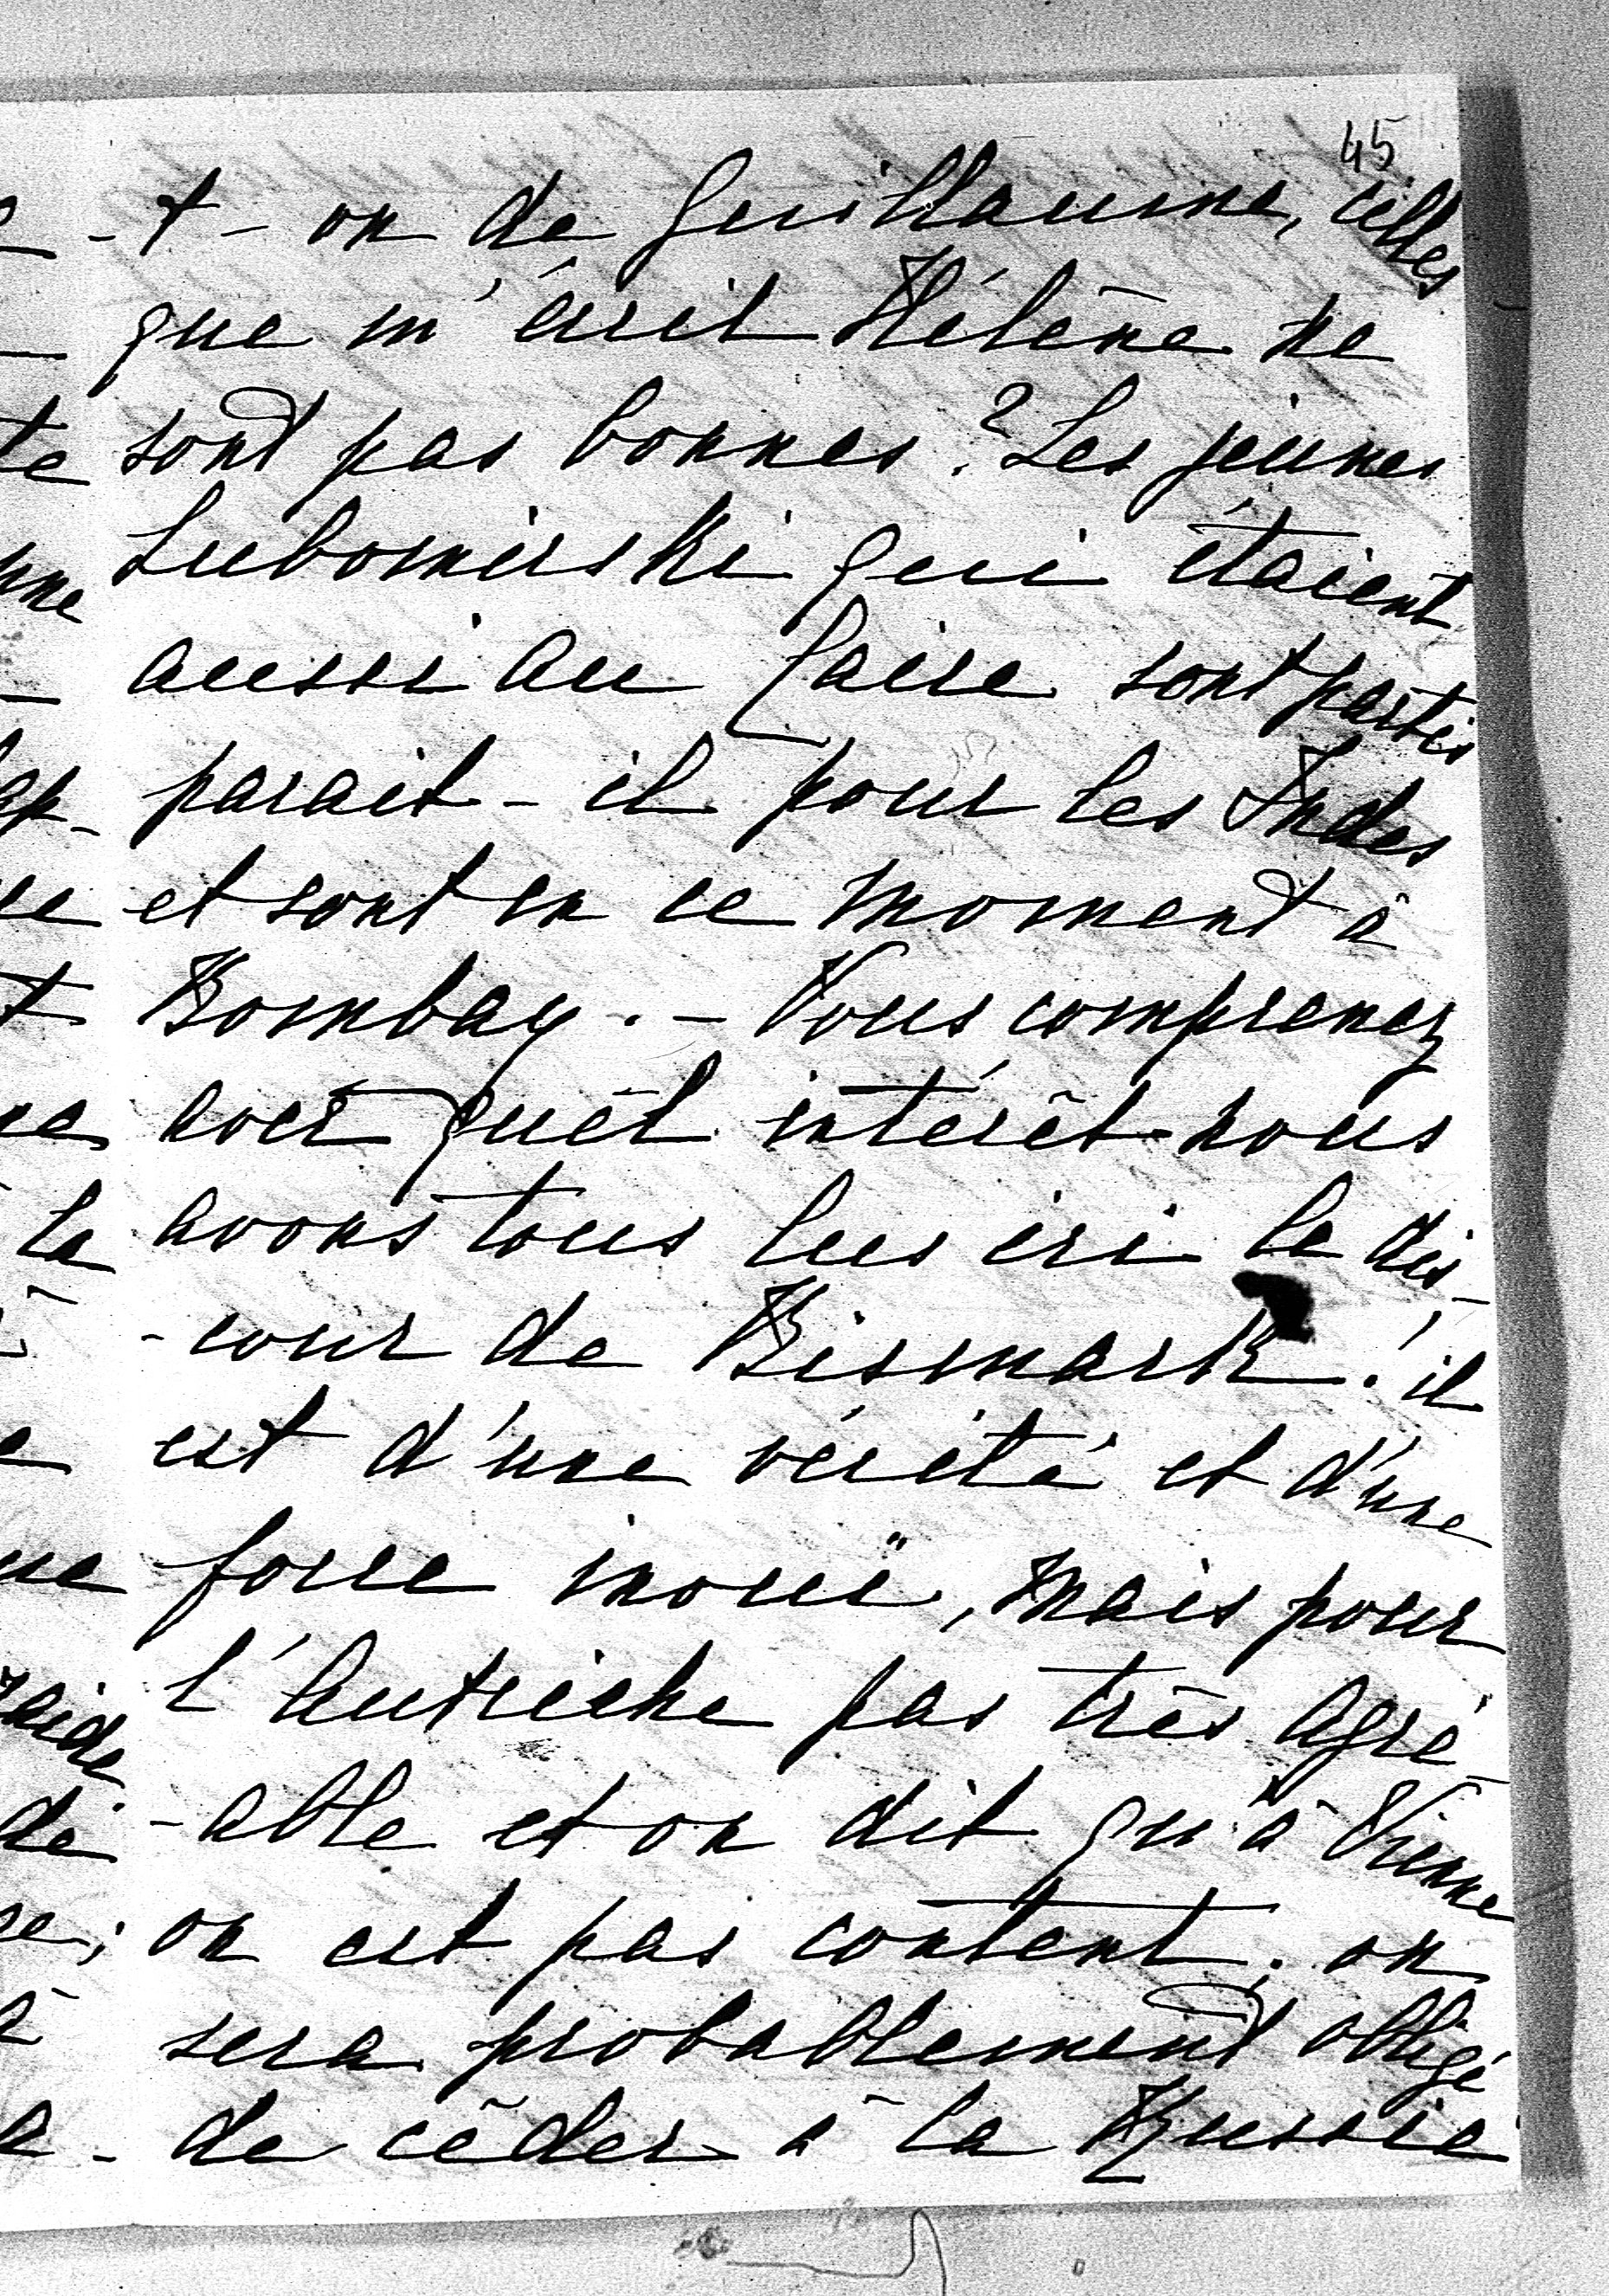 45
-t-on de Guillaume, celles
que m'écrit Hélène ne
sont pas bonnes? Les jeunes
Lubomirski qui étaient
aussi au Caire sont partis
parait-il pour les Indes
et sont en ce moment à
Bombay. - Vous comprenez
avec quel intérêt nous
avons tous lus ici le dis-
-cour de Bismark! il
est d'une vérité et d'une
force inouïe, mais pour
l'Autriche pas très agré-
-able et on dit qu'à Vienne
on est pas content; on
sera probablement obligé
de cèder à la Russie